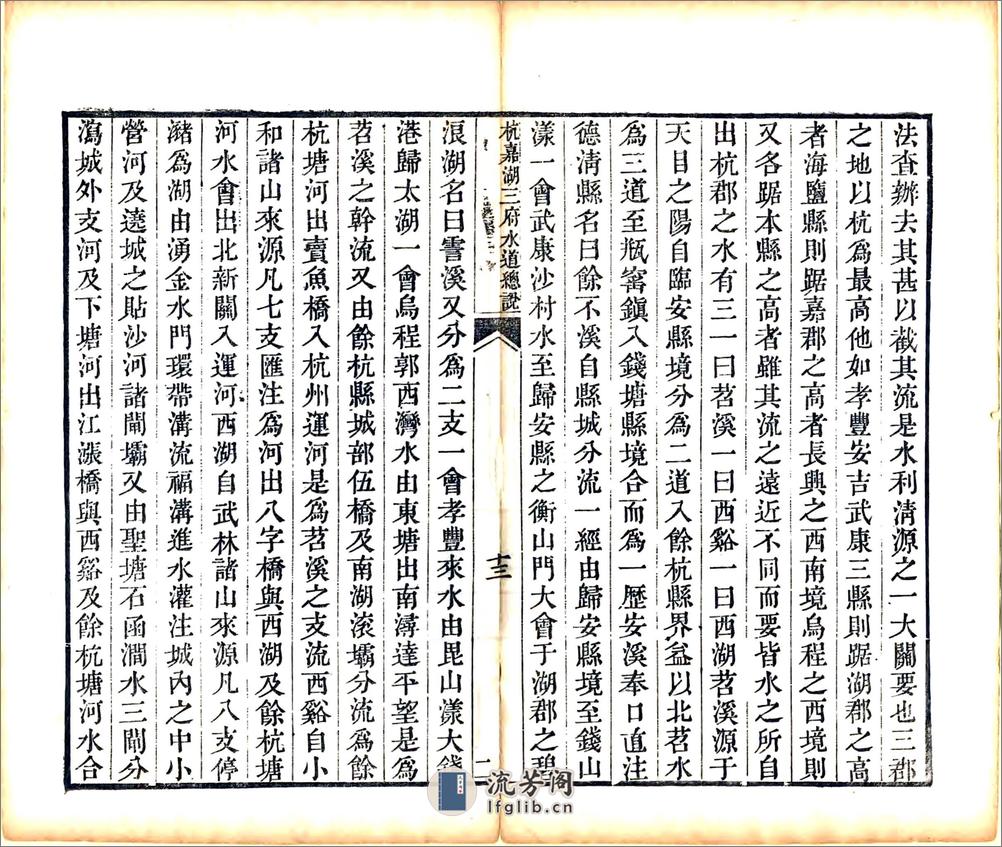 法查辦去其甚以截其流是水利淸源之一大關要也三郡
之地以杭爲最高他如孝豐安吉武康三縣則踞湖郡之高
者海鹽縣則踞嘉郡之高者長興之西南境烏程之西境則
又各踞本縣之高者雖其流之遠近不同而要皆水之所自
出杭郡之水有三一曰苕溪一曰西谿一曰西湖苕溪源于
天目之陽自臨安縣境分爲二道入餘杭縣界益以北苕水
爲三道至瓶窰鎭入錢塘縣境合而爲一歷安溪奉口直注
德淸縣名曰餘不溪自縣城分流一經由歸安縣境至錢山
漾一會武康沙村水至歸安縣之衡山門大會于湖郡之碧
杭嘉湖三府水道總說
十三
二
浪湖名曰霅溪又分爲二支一會孝豐來水由毘山漾大錢
港歸太湖一會烏程郭西灣水由東塘出南潯達平望是爲
苕溪之幹流又由餘杭縣城部伍橋及南湖滾壩分流爲餘
杭塘河出賣魚橋入杭州運河是爲苕溪之支流西谿自小
和諸山來源凡七支匯注爲河出八字橋與西湖及餘杭塘
河水會出北新關入運河西湖自武林諸山來源凡八支停
瀦爲湖由湧金水門環帶溝流福溝進水灌注城內之中小
營河及遶城之貼沙河諸閘壩又由聖塘石函澗水三閘分
瀉城外支河及下塘河出江漲橋與西谿及餘杭塘河水合
流芳阁
lfglib.cn